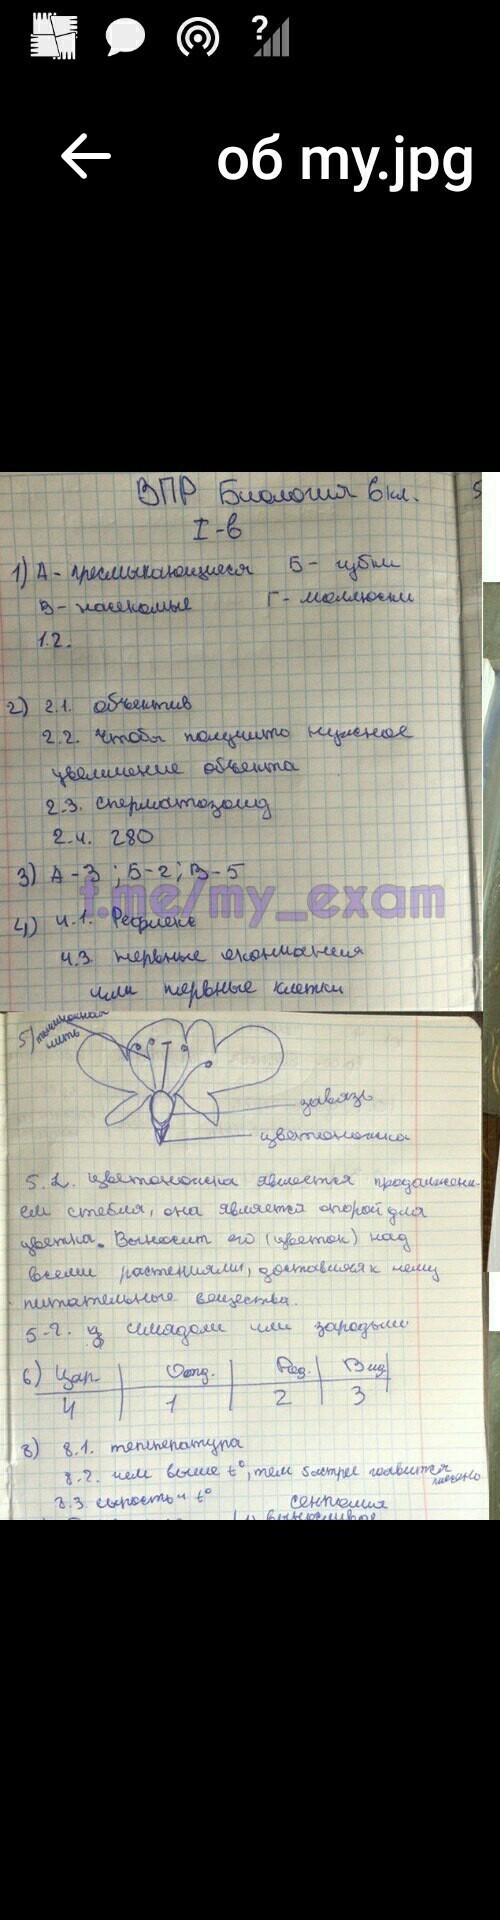 ?
об my.jpg
ВПР Биология 6 кл.
5
I-в
1) А - пресмыкающиеся Б - губки
В - насекомые Г - моллюски
1.2.
2) 2.1. объектив
2.2. чтобы получить нужное
увеличение объекта
2.3. сперматозоид
2.4. 280
3) А-3; Б-2; В-5
t.me/my_exam
4) 4.1. Рефлекс
4.3 нервные окончания
или нервные клетки
5) тычиночная
нить
завязь
цветоножка
цветоножка является продолжени-
ем стебля, она является опорой для
цветка. Выносит его (цветок) над
всеми растениями, доставляя к нему
питательные вещества.
5-2. или зародыш
6) Цар. Отд. Род. Вид
4 1 2 3
8) 8.1. температура
8.2. чем выше t°, тем быстрее появится
8.3. сырость и t°